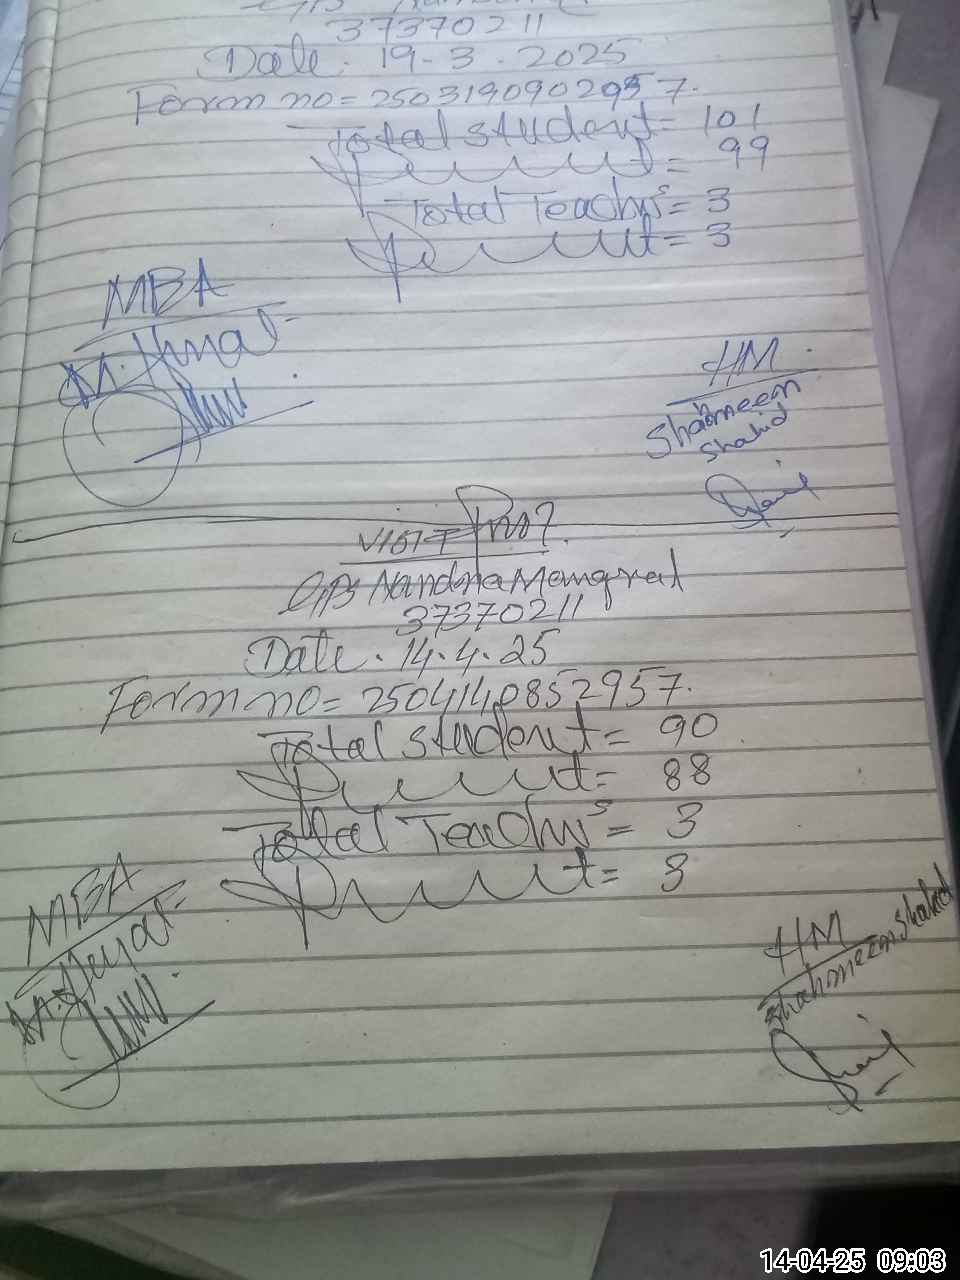 37370211
Date. 19-3.2025
Form no = 2503190902957.
Total student = 101
Present = 99
Total Teachers = 3
Present = 3
MBA
HM
Shahmeen
Shahid
VISIT
GPS Nandna Mangral
37370211
Date. 14.4.25
Form no = 2504140852957.
Total student = 90
Present = 88
Total Teachers = 3
Present = 3
MBA
HM
Shahmeen Shahid
14-04-25 09:03